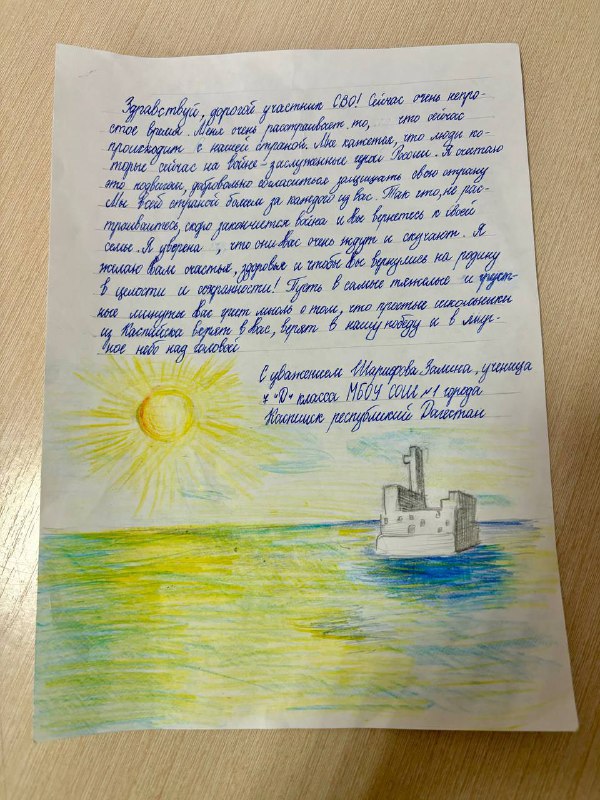 Здравствуй, дорогой участник СВО! Сейчас очень непро-
стое время. Меня очень расстраивает то, что сейчас
происходит с нашей страной. Мне кажется, что люди ко-
торые сейчас на войне - заслуженные герои России. Я считаю
это подвигом, добровольно согласиться защищать свою страну
Мы всей страной болеем за каждого из вас. Так что, не рас-
траивайтесь, скоро закончится война и вы вернетесь к своей
семье. Я уверена, что они вас очень ждут и скучают. Я
желаю Вам счастья, здоровья и чтобы Вы вернулись на родину
в целости и сохранности! Пусть в самые тяжелые и груст-
ные минуты Вас греет мысль о том, что простые школьники
из Каспийска верят в Вас, верят в нашу победу и в мир-
ное небо над головой
С уважением Шарифова Залина, ученица
7 "Д" класса МБОУ СОШ №1 города
Каспийск республикий Дагестан